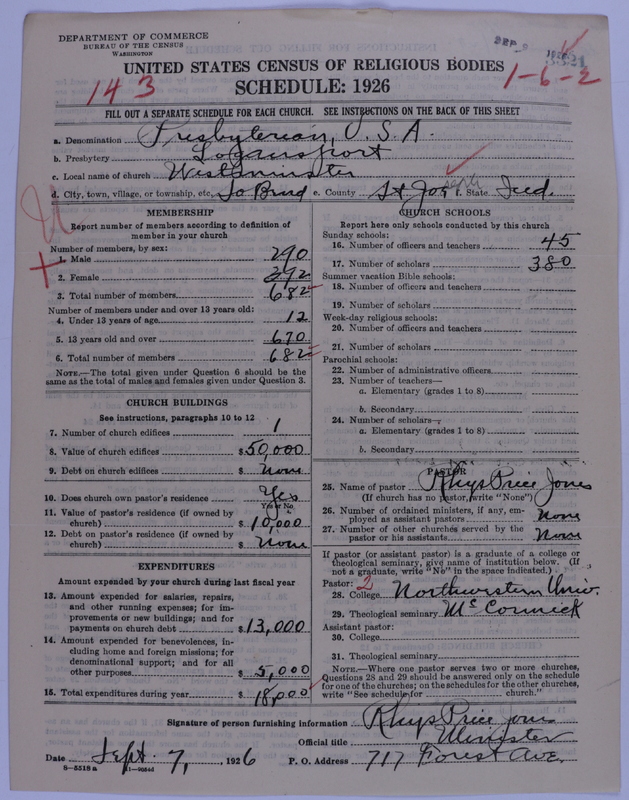 DEPARTMENT OF COMMERCE
BUREAU OF THE CENSUS
WASHINGTON
SEP 9 1926
UNITED STATES CENSUS OF RELIGIOUS BODIES
SCHEDULE: 1926
143
1-6-2
FILL OUT A SEPARATE SCHEDULE FOR EACH CHURCH. SEE INSTRUCTIONS ON THE BACK OF THIS SHEET
a. Denomination Presbyterian, U.S.A.
b. Presbytery Logansport
c. Local name of church Westminster
d. City, town, village, or township, etc. So Bend e. County St Joseph f. State Ind.
MEMBERSHIP
Report number of members according to definition of member in your church
Number of members, by sex:
1. Male 290
2. Female 392
3. Total number of members 682
Number of members under and over 13 years old:
4. Under 13 years of age 12
5. 13 years old and over 670
6. Total number of members 682
NOTE.—The total given under Question 6 should be the same as the total of males and females given under Question 3.
CHURCH BUILDINGS
See instructions, paragraphs 10 to 12
7. Number of church edifices 1
8. Value of church edifices $50,000
9. Debt on church edifices $ None
10. Does church own pastor's residence Yes
Yes or No
11. Value of pastor's residence (if owned by church) $10,000
12. Debt on pastor's residence (if owned by church) $ None
EXPENDITURES
Amount expended by your church during last fiscal year
13. Amount expended for salaries, repairs, and other running expenses; for improvements or new buildings; and for payments on church debt $13,000
14. Amount expended for benevolences, including home and foreign missions; for denominational support; and for all other purposes $5,000
15. Total expenditures during year $18,000
CHURCH SCHOOLS
Report here only schools conducted by this church
Sunday schools:
16. Number of officers and teachers 45
17. Number of scholars 380
Summer vacation Bible schools:
18. Number of officers and teachers
19. Number of scholars
Week-day religious schools:
20. Number of officers and teachers
21. Number of scholars
Parochial schools:
22. Number of administrative officers
23. Number of teachers—
a. Elementary (grades 1 to 8)
b. Secondary
24. Number of scholars—
a. Elementary (grades 1 to 8)
b. Secondary
PASTOR
25. Name of pastor Rhys Price Jones
(If church has no pastor, write "None")
26. Number of ordained ministers, if any, employed as assistant pastors None
27. Number of other churches served by the pastor or his assistants None
If pastor (or assistant pastor) is a graduate of a college or theological seminary, give name of institution below. (If not a graduate, write "No" in the space indicated.)
Pastor: 2
28. College Northwestern Univ.
29. Theological seminary McCormick
Assistant pastor:
30. College
31. Theological seminary
NOTE.—Where one pastor serves two or more churches, Questions 28 and 29 should be answered only on the schedule for one of the churches; on the schedules for the other churches, write "See schedule for church."
Signature of person furnishing information Rhys Price Jones
Official title Minister
Date Sept 7, 1926 P. O. Address 717 Forest Ave.
8-5518a